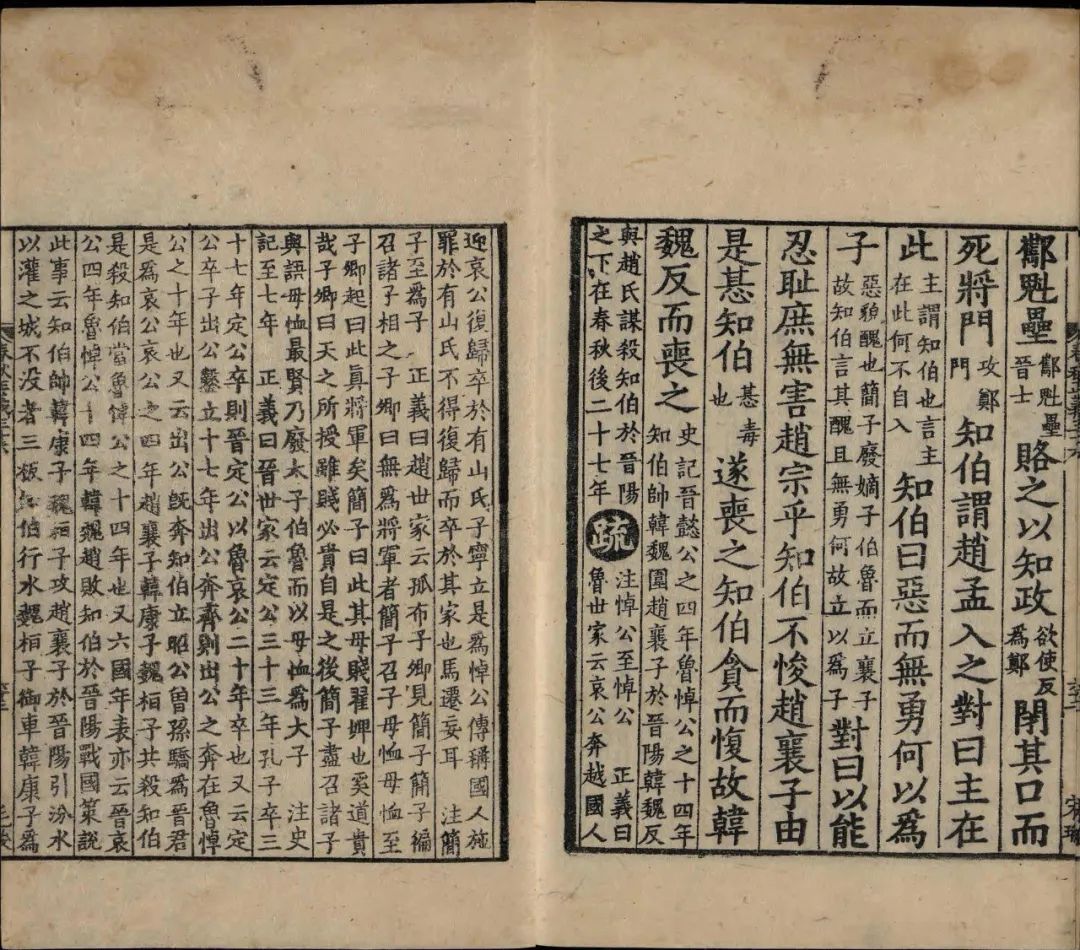 酅魁壘酅魁壘晉士賂之以知政欲使反為鄭閉其口而
死將門攻鄭門知伯謂趙孟入之對曰主在
此主謂知伯也言主在此何不自入知伯曰惡而無勇何以為
子惡貌醜也簡子廢嫡子伯魯而立襄子故知伯言其醜且無勇何故立以為子對曰以能
忍恥庶無害趙宗乎知伯不悛趙襄子由
是惎知伯惎毒也遂喪之知伯貪而愎故韓
魏反而喪之史記晉懿公之四年魯悼公之十四年知伯帥韓魏圍趙襄子於晉陽韓魏反
與趙氏謀殺知伯於晉陽之下在春秋後二十七年疏注悼公至悼公 正義曰魯世家云哀公奔越國人
迎哀公復歸卒於有山氏子寧立是為悼公傳稱國人施
罪於有山氏不得復歸而卒於其家也馬遷妄耳 注簡
子至為子 正義曰趙世家云孤布子卿見簡子簡子徧
召諸子相之子卿曰無為將軍者簡子召子毋恤毋恤至
子卿起曰此真將軍矣簡子曰此其母賤翟婢也奚道貴
哉子卿曰天之所授雖賤必貴自是之後簡子盡召諸子
與語毋恤最賢乃廢太子伯魯而以毋恤為大子 注史
記至七年 正義曰晉世家云定公三十三年孔子卒三
十七年定公卒則晉定公以魯哀公二十年卒也又云定
公卒子出公鑿立十七年出公奔齊則出公之奔在魯悼
公之十年也又云出公既奔知伯立昭公曾孫驕為晉君
是為哀公哀公之四年趙襄子韓康子魏桓子共殺知伯
是殺知伯當魯悼公之十四年也又六國年表亦云晉哀
公四年魯悼公十四年韓魏趙敗知伯於晉陽戰國策說
此事云知伯帥韓康子魏桓子攻趙襄子於晉陽引汾水
以灌之城不沒者三板知伯行水魏桓子御車韓康子為